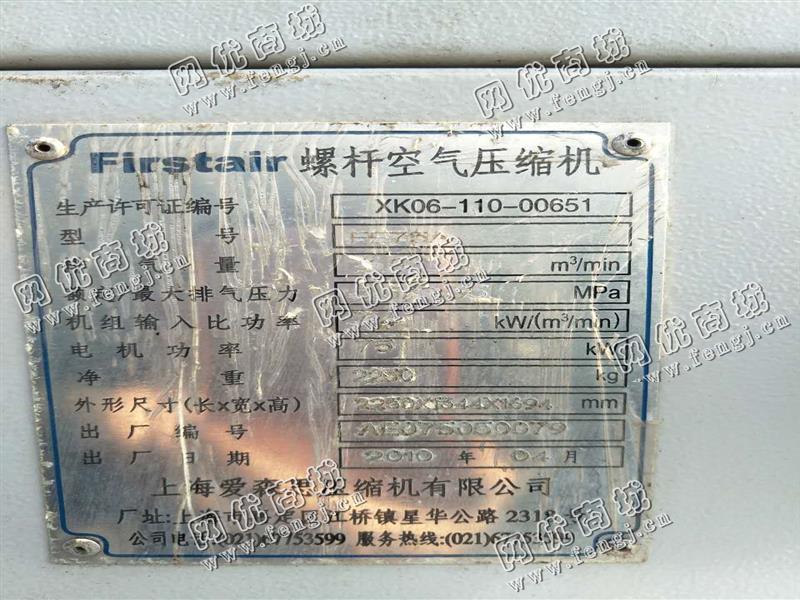 网优商城 网优商城 网优商城
www.fengj.cn www.fengj.cn www.fengj.cn
Firstair 螺杆空气压缩机
生产许可证编号 XK06-110-00651
型 号
气 量 m³/min
额定/最大排气压力 MPa
机组输入比功率 kW/(m³/min)
电机功率 75 kW
净 重 2280 kg
外形尺寸(长×宽×高) mm
出厂编号
出厂日期 2010 年 04 月
上海爱森思压缩机有限公司
厂址:上海 江桥镇星华公路 2318号
公司电 (021)67753599 服务热线:(021)
网优商城 网优商城 网优商城
www.fengj.cn www.fengj.cn www.fengj.cn
网优商城 网优商城 网优商城
www.fengj.cn www.fengj.cn www.fengj.cn